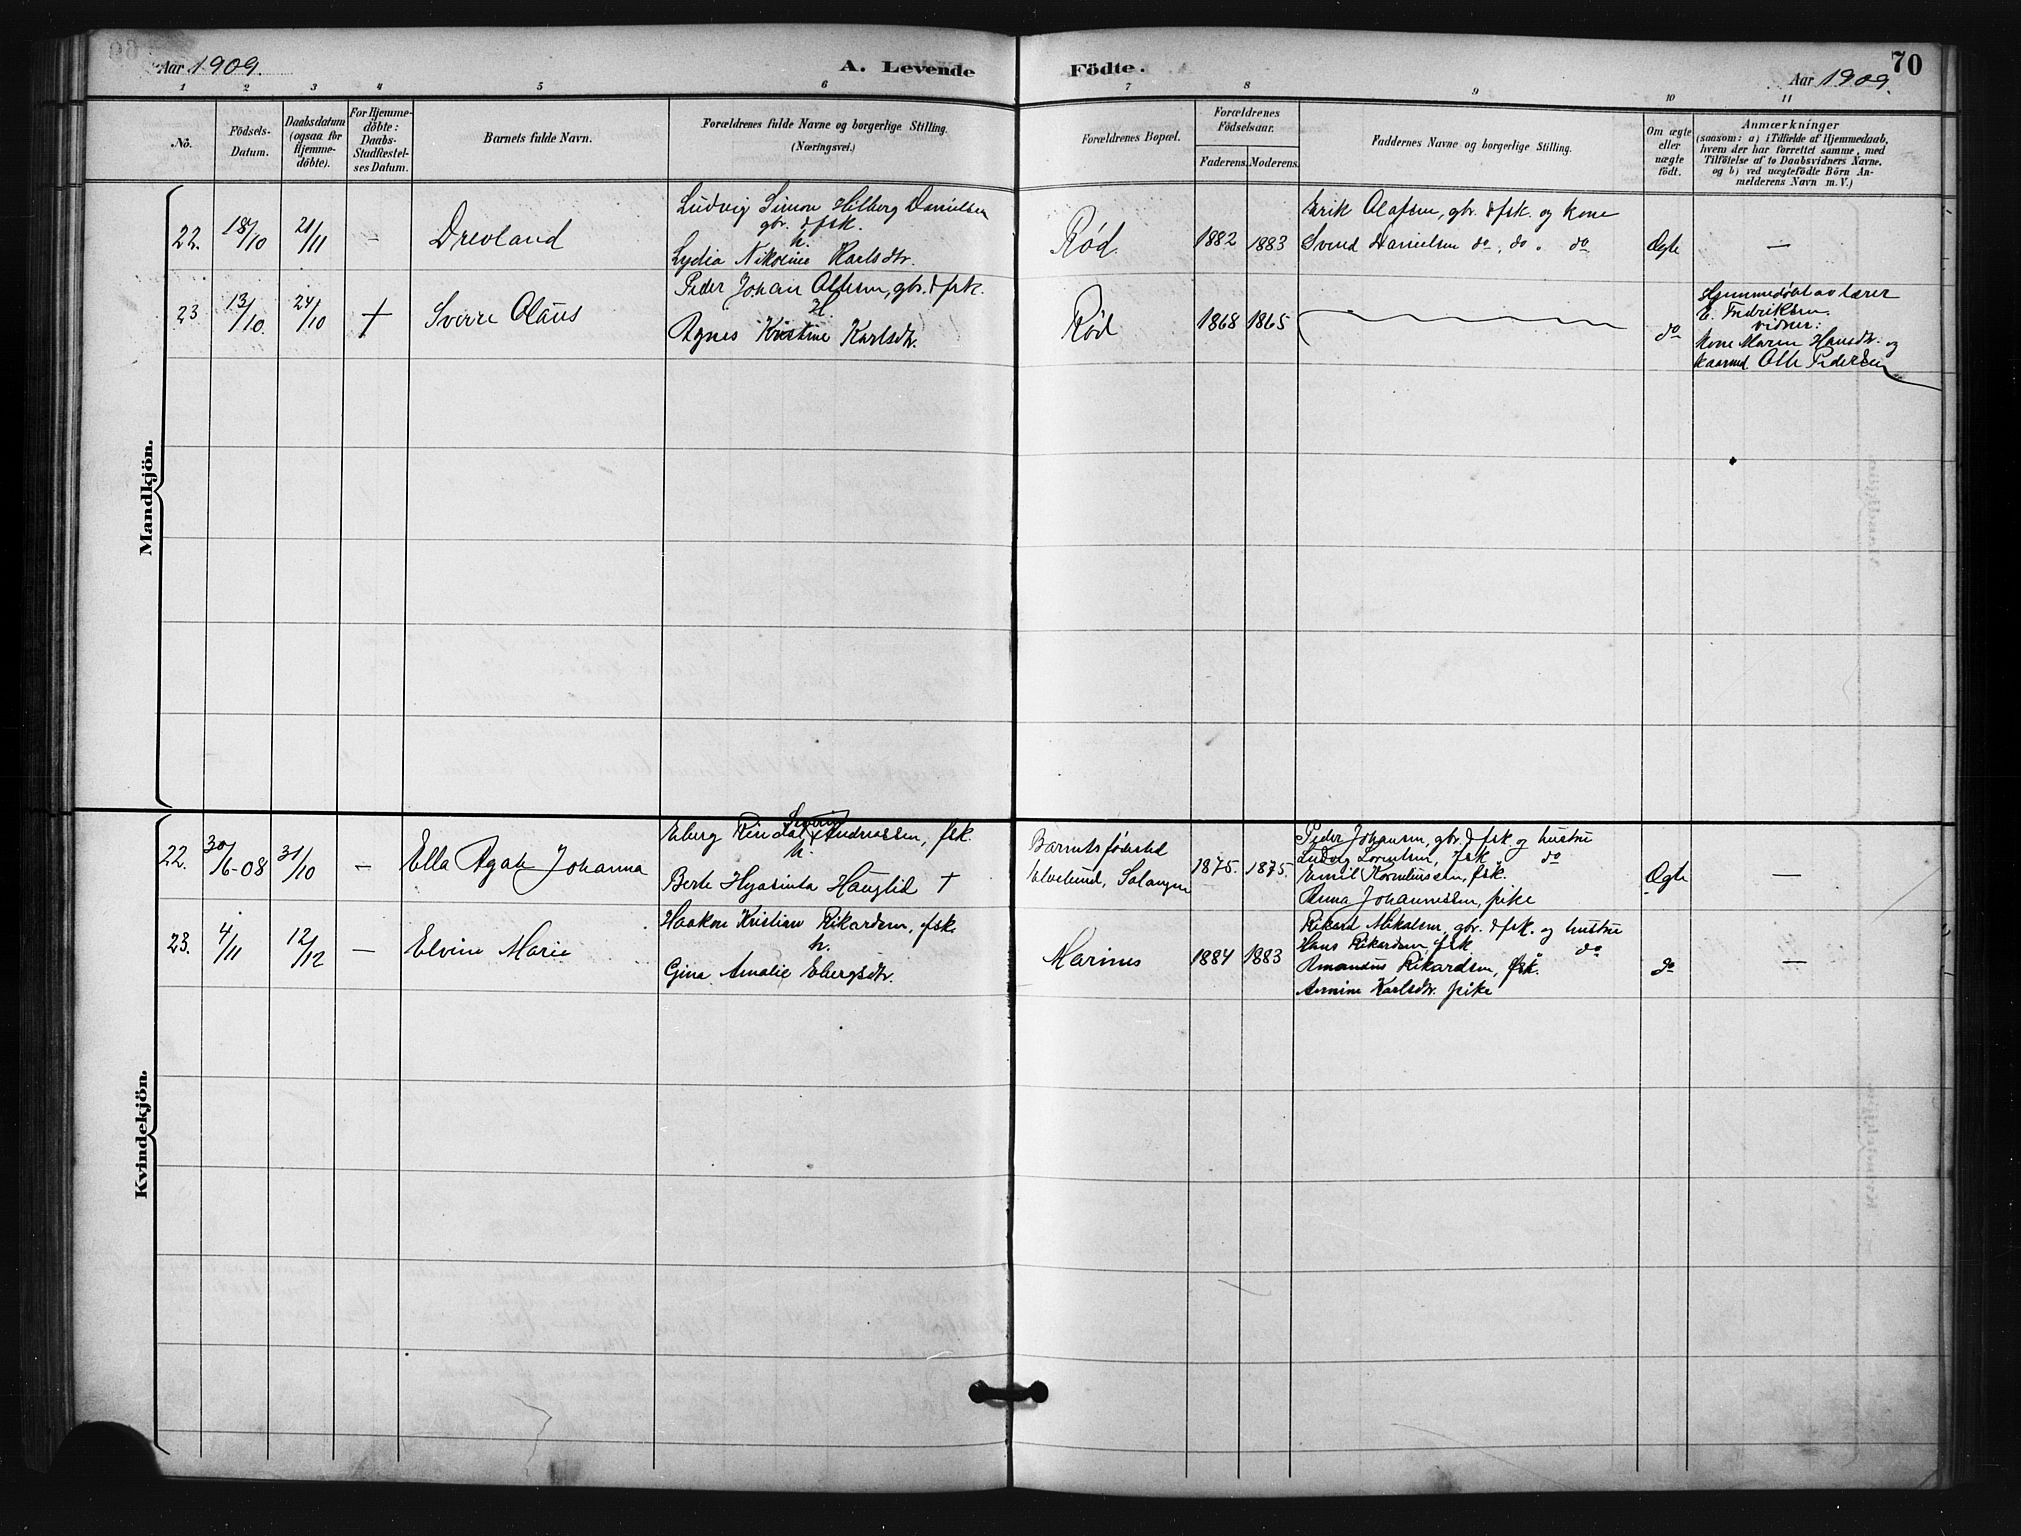 Aar 1909.
A. Levende Födte.
70
Aar 1909.
1 2 3 4 5 6 7 8 9 10 11
No.
Födsels-
Datum.
Daabsdatum
(ogsaa for
Hjemme-
döbte).
For Hjemme-
döbte:
Daabs-
Stadfæstel-
ses Datum.
Barnets fulde Navn.
Forældrenes fulde Navne og borgerlige Stilling.
(Næringsvei.)
Forældrenes Bopæl.
Forældrenes
Födselsaar.
Faderens.
Moderens.
Faddernes Navne og borgerlige Stilling.
Om ægte
eller
uægte
födt.
Anmærkninger
(saasom: a) i Tilfælde af Hjemmedaab,
hvem der har forrettet samme, med
Tilföielse af to Daabsvidners Navne,
og b) ved uægtefödte Börn An-
melderens Navn m. V.)
Mandkjön.
22.
18/10
21/11
-
Drevland
Ludvig Simon Hilberg Danielsen
gbr. & fsk.
h.
Lydia Nikoline Karlsdtr.
Rød.
1882
1883
Erik Olafsen, gbr. & fsk. og kone
Svend Danielsen do, do. do
Ægte
—
23
13/10.
24/10
+
Sverre Olaus
Peder Johan Olsen, gbr. & fsk.
H.
Agnes Kristine Karlsdtr.
Rød
1868
1865
do
Hjemmedøbt av lærer
E. Fredriksen.
vidner:
kone Maren Hansdtr. og
kaarmd. Ole Pedersen
Kvindekjön.
22.
30/6-08
31/10
—
Ella Agate Johanna
Eberg Rindal Andreassen, fsk.
h.
Berte Hyasinta Hauglid +
Barnets fødested
Elvelund, Salangen
1875.
1875.
Peder Johansen, gbr. & fsk og hustru
Ludvig Lorentsen, fsk do
Emil Korneliussen, fsk.
Anna Johannessen, pike
Ægte
—
23.
4/11
12/12
—
Elvine Marie
Haakon Kristian Rikardsen, fsk
h.
Gina Amalie Ebergsdtr.
Marines
1884
1883
Rikard Mikalsen, gbr. & fsk. og hustru
Hans Rikardsen fsk do
Amandus Rikardsen, fsk.
Annine Karlsdtr. pike
do
—